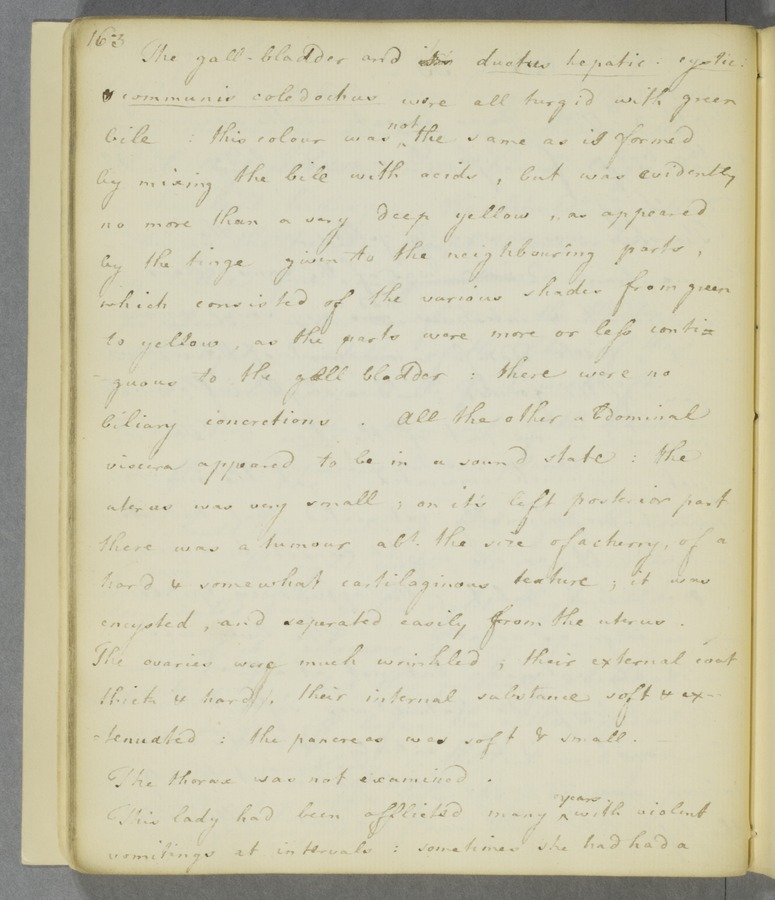 163
The gall-bladder and ductus hepatic: cystic:
& communis coledochus were all turgid with green
bile : this colour was not the same as is formed
by mixing the bile with acids, but was evidently
no more than a very deep yellow, as appeared
by the tinge given to the neighbouring parts,
which consisted of the various shades from green
to yellow, as the parts were more or less conti=
guous to the gall bladder : there were no
biliary concretions . All the other abdominal
viscera appeared to be in a sound state : the
uterus was very small ; on it's left posterior part
there was a tumour abt. the size of a cherry, of a
hard & somewhat cartilaginous texture ; it was
encysted, and separated easily from the uterus .
The ovaries were much wrinkled ; their external coat
thick & hard, their internal substance soft & ex-
-tenuated : the pancreas was soft & small.
The thorax was not examined .
This lady had been afflicted many years with violent
vomitings at intervals : sometimes she had had a